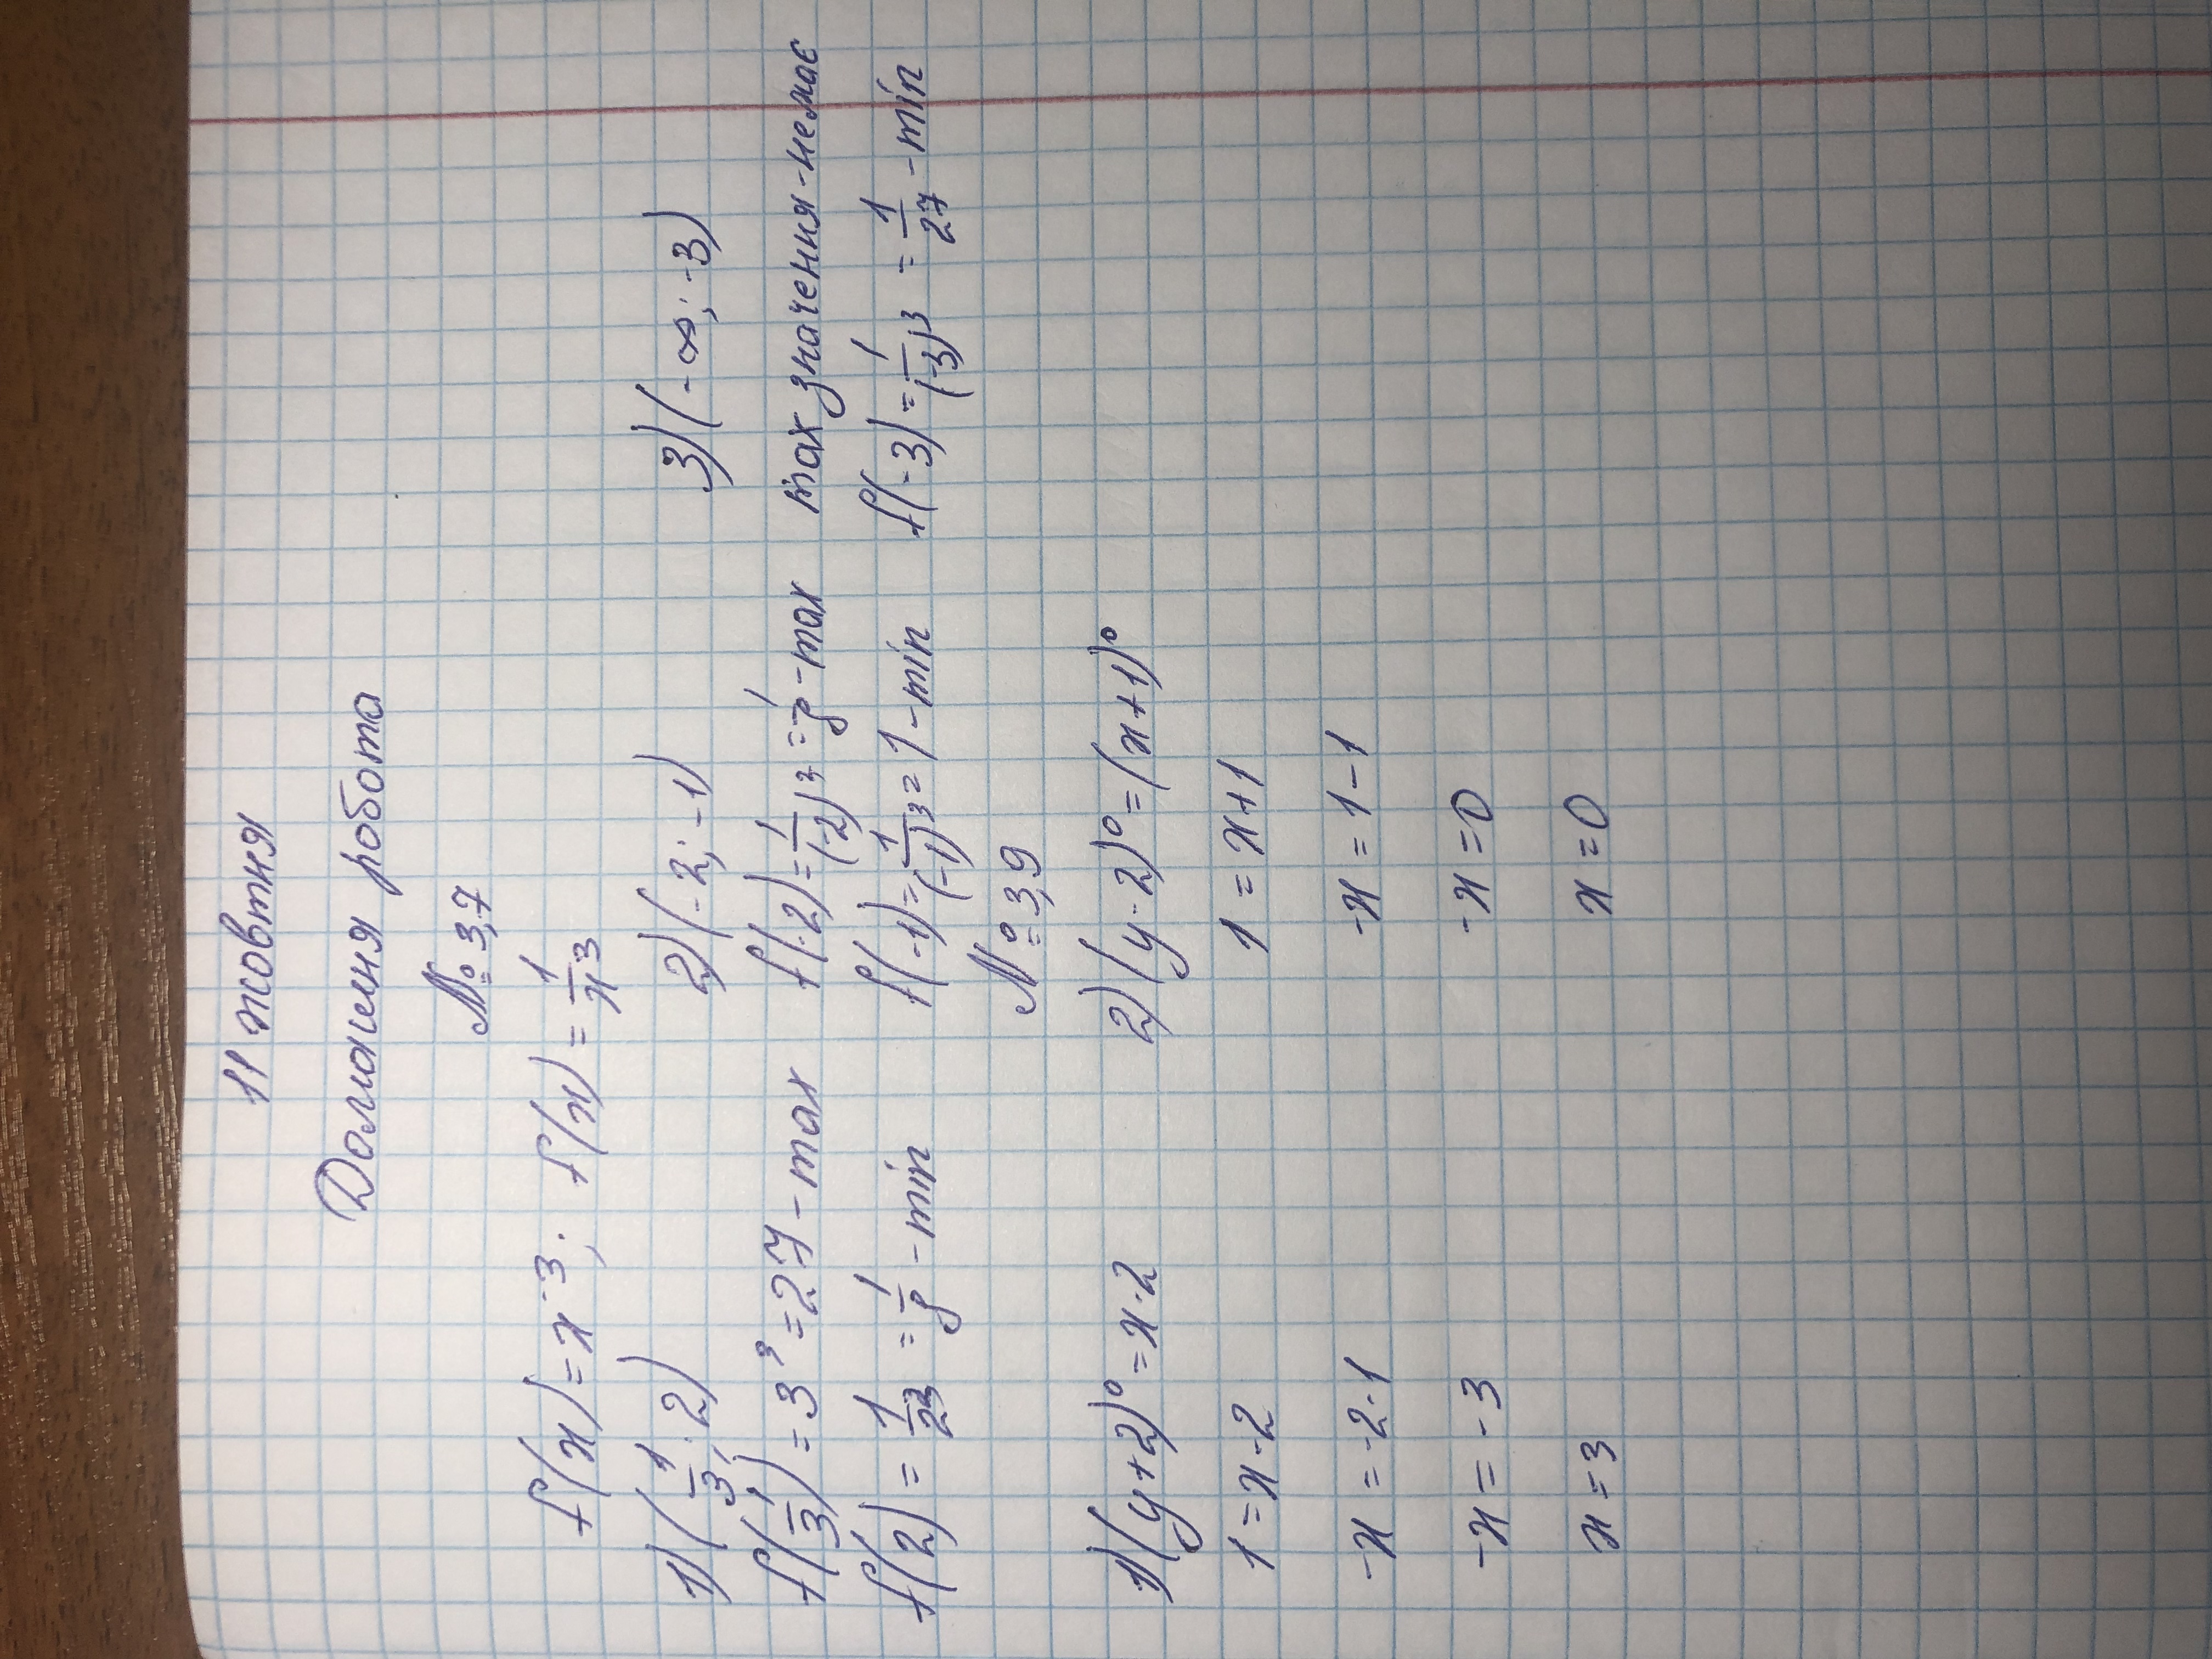 11 жовтня
Домашня робота
№ 3,7
f(x) = x⁻³; f(x) = 1/x³
1) (1/3; 2) 2) (-2; -1) 3) (-∞; -3)
f(1/3) = 3³ = 27 - max f(-2) = 1/(-2)³ = -1/8 - max max значення - немає
f(2) = 1/2³ = 1/8 - min f(-1) = 1/(-1)³ = 1 - min f(-3) = 1/(-3)³ = 1/27 - min
№ 3,9
1) (y+2)⁰ = x-2 2) (y-2)⁰ = (x+1)⁰
1 = x-2 1 = x+1
-x = -2-1 -x = 1-1
-x = -3 -x = 0
x = 3 x = 0